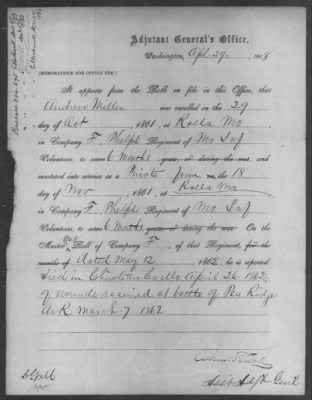 Adjutant General's Office,
Washington, Apl 29, 1868
[MEMORANDUM FOR OFFICE USE.]
It appears from the Roll on file in this Office, that
Andrew Miller was enrolled on the 29
day of Oct, 1861, at Rolla Mo
in Company F, Phelps Regiment of Mo Inf
Volunteers, to serve 6 months years, or during the war, and
mustered into service as a Private from on the 18
day of Nov, 1861, at Rolla Mo,
in Company F, Phelps Regiment of Mo Inf
Volunteers, to serve 6 months years, or during the war. On the
Muster Out Roll of Company F, of that Regiment, for the
months of dated May 12, 1862, he is reported
died in April 26, 1862,
of wounds received at battle of Pea Ridge
Ark March 7 1862
Asst Adjt Genl